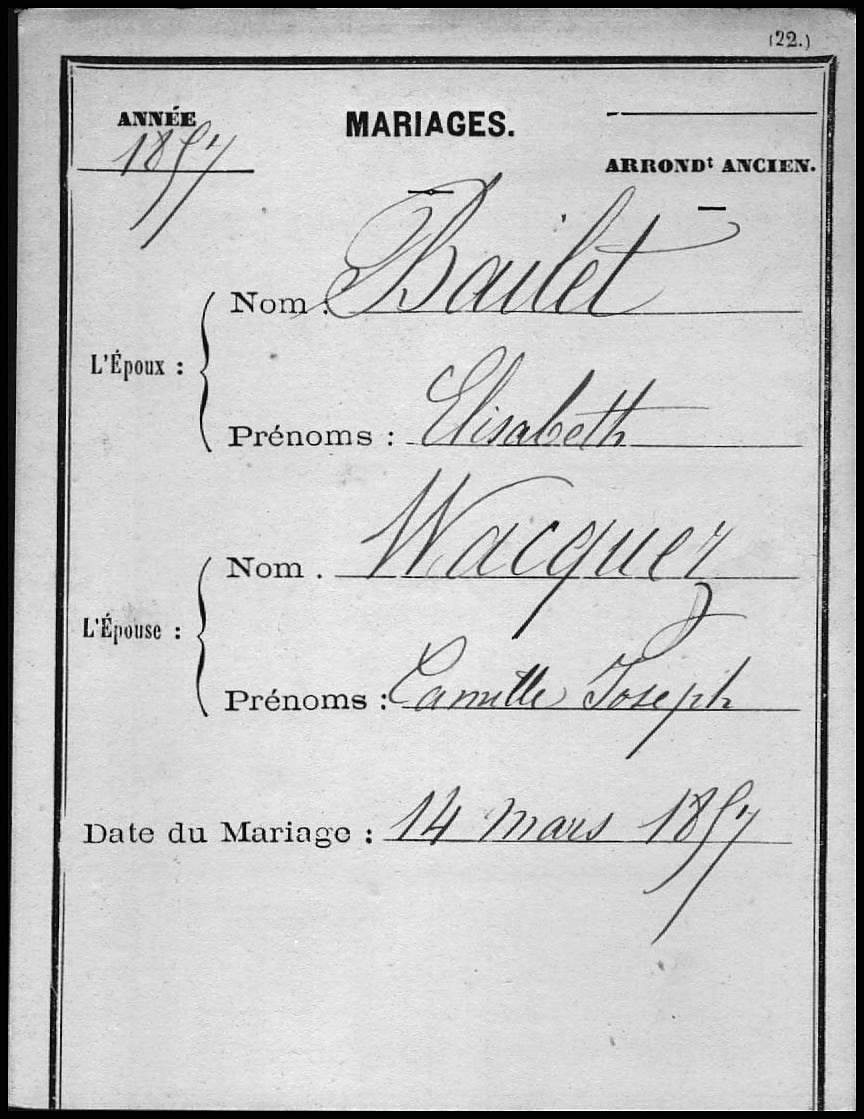 (22.)
ANNÉE
1857
MARIAGES.
ARRONDt ANCIEN.
L'Époux :
Nom : Bailet
Prénoms : Elisabeth
L'Épouse :
Nom . Wacquez
Prénoms : Camille Joseph
Date du Mariage : 14 mars 1857